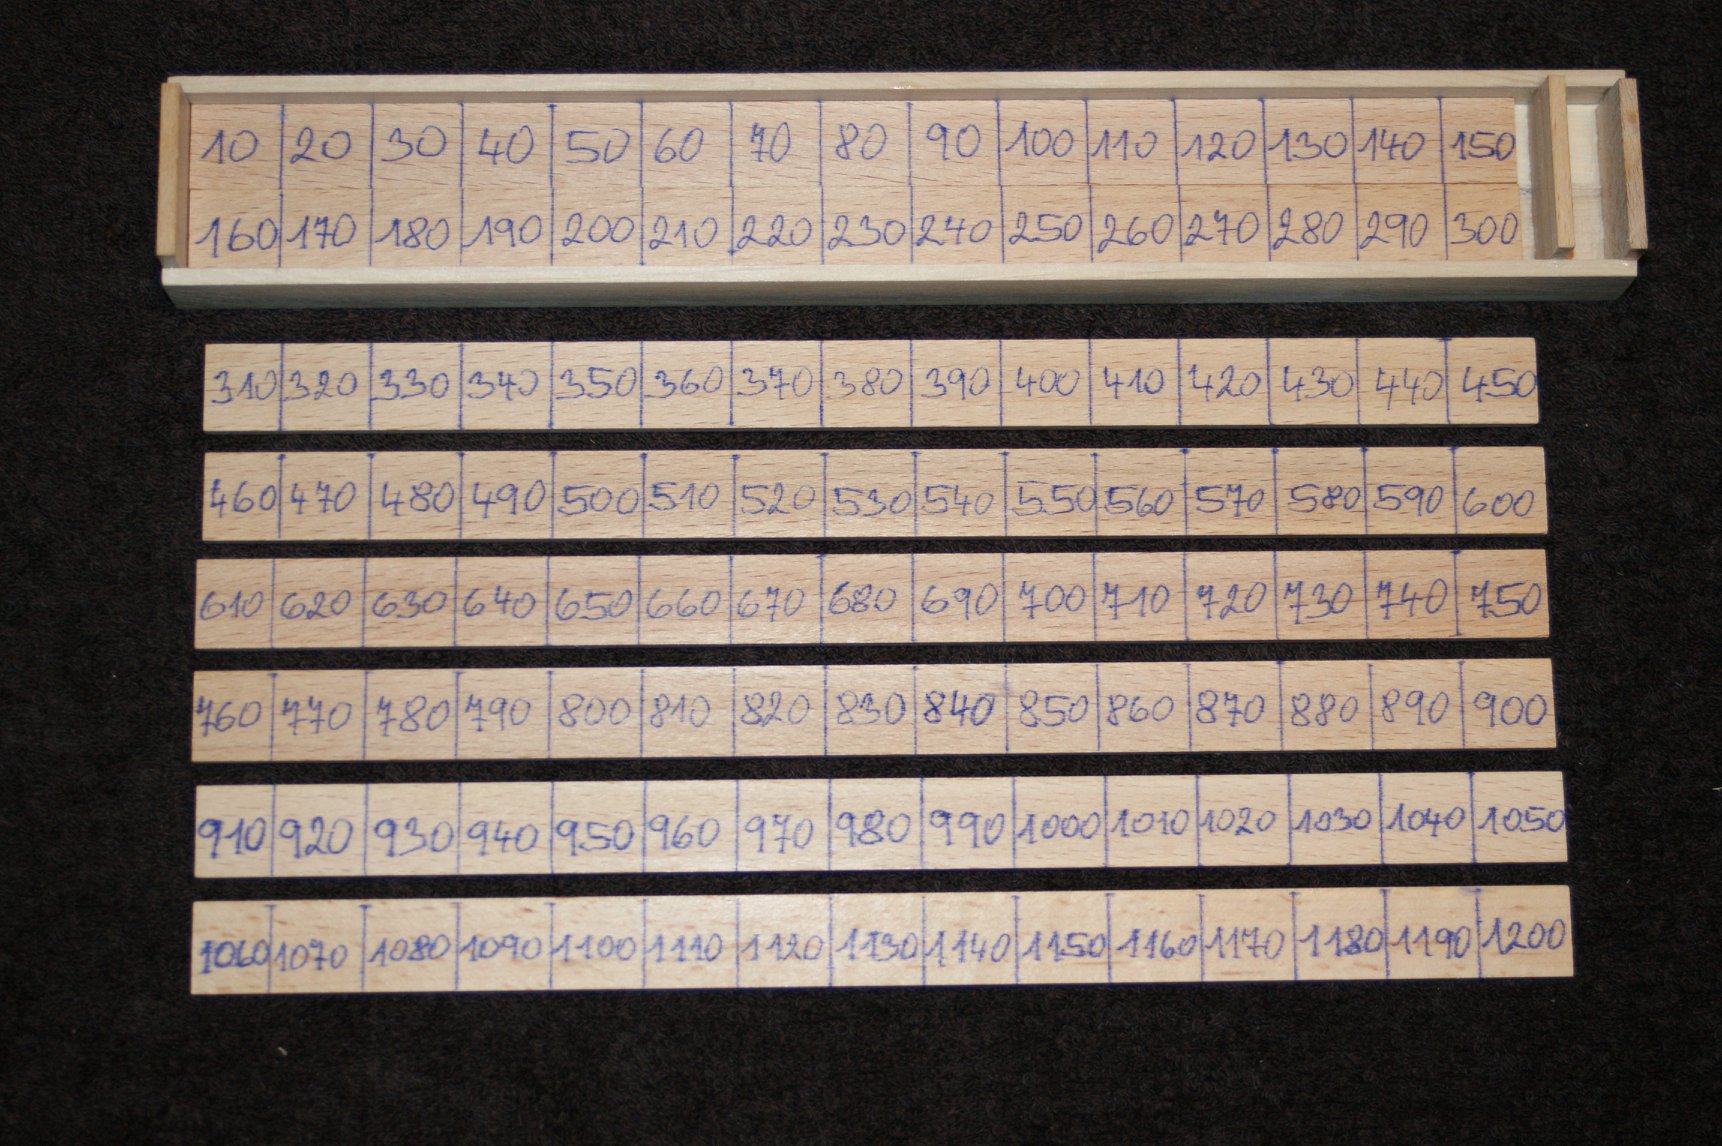 10 20 30 40 50 60 70 80 90 100 110 120 130 140 150
160 170 180 190 200 210 220 230 240 250 260 270 280 290 300
310 320 330 340 350 360 370 380 390 400 410 420 430 440 450
460 470 480 490 500 510 520 530 540 550 560 570 580 590 600
610 620 630 640 650 660 670 680 690 700 710 720 730 740 750
760 770 780 790 800 810 820 830 840 850 860 870 880 890 900
910 920 930 940 950 960 970 980 990 1000 1010 1020 1030 1040 1050
1060 1070 1080 1090 1100 1110 1120 1130 1140 1150 1160 1170 1180 1190 1200